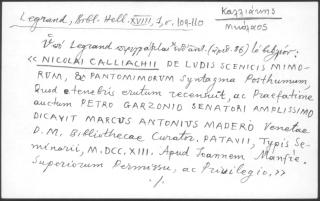 Legrand, Bibl. Hell. XVIII, 1, σ. 109-110
Καλλιάκης
Νικόλαος
Legrand
« NICOLAI CALLIACHII DE LUDIS SCENICIS MIMO-
RUM, & PANTOMIMORUM Syntagma Posthumum
Quod e tenebris erutum recensuit, ac Praefatione
auctum PETRO GARZONIO SENATORI AMPLISSIMO
DICAVIT MARCUS ANTONIUS MADERO Venetae
D. M. Bibliothecae Curator. PATAVII, Typis Se-
minarii, M.DCC.XIII. Apud Joannem Manfrè.
Superiorum Permissu, ac Privilegio.»